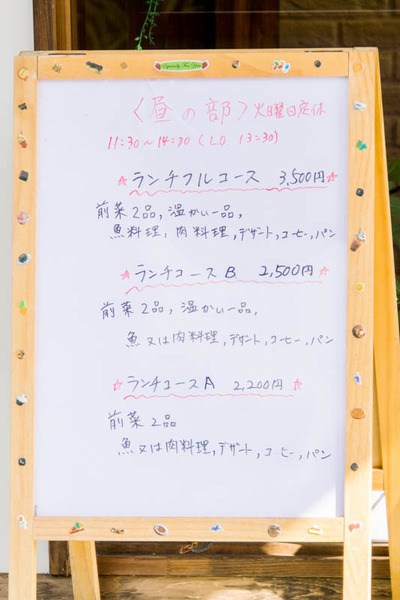 〈昼の部〉火曜日定休
11:30〜14:30 (L.O. 13:30)
☆ランチフルコース 3,500円☆
前菜2品,温かい一品,
魚料理,肉料理,デザート,コーヒー,パン
☆ランチコースB 2,500円☆
前菜2品,温かい一品,
魚又は肉料理,デザート,コーヒー,パン
☆ランチコースA 2,200円☆
前菜2品
魚又は肉料理,デザート,コーヒー,パン